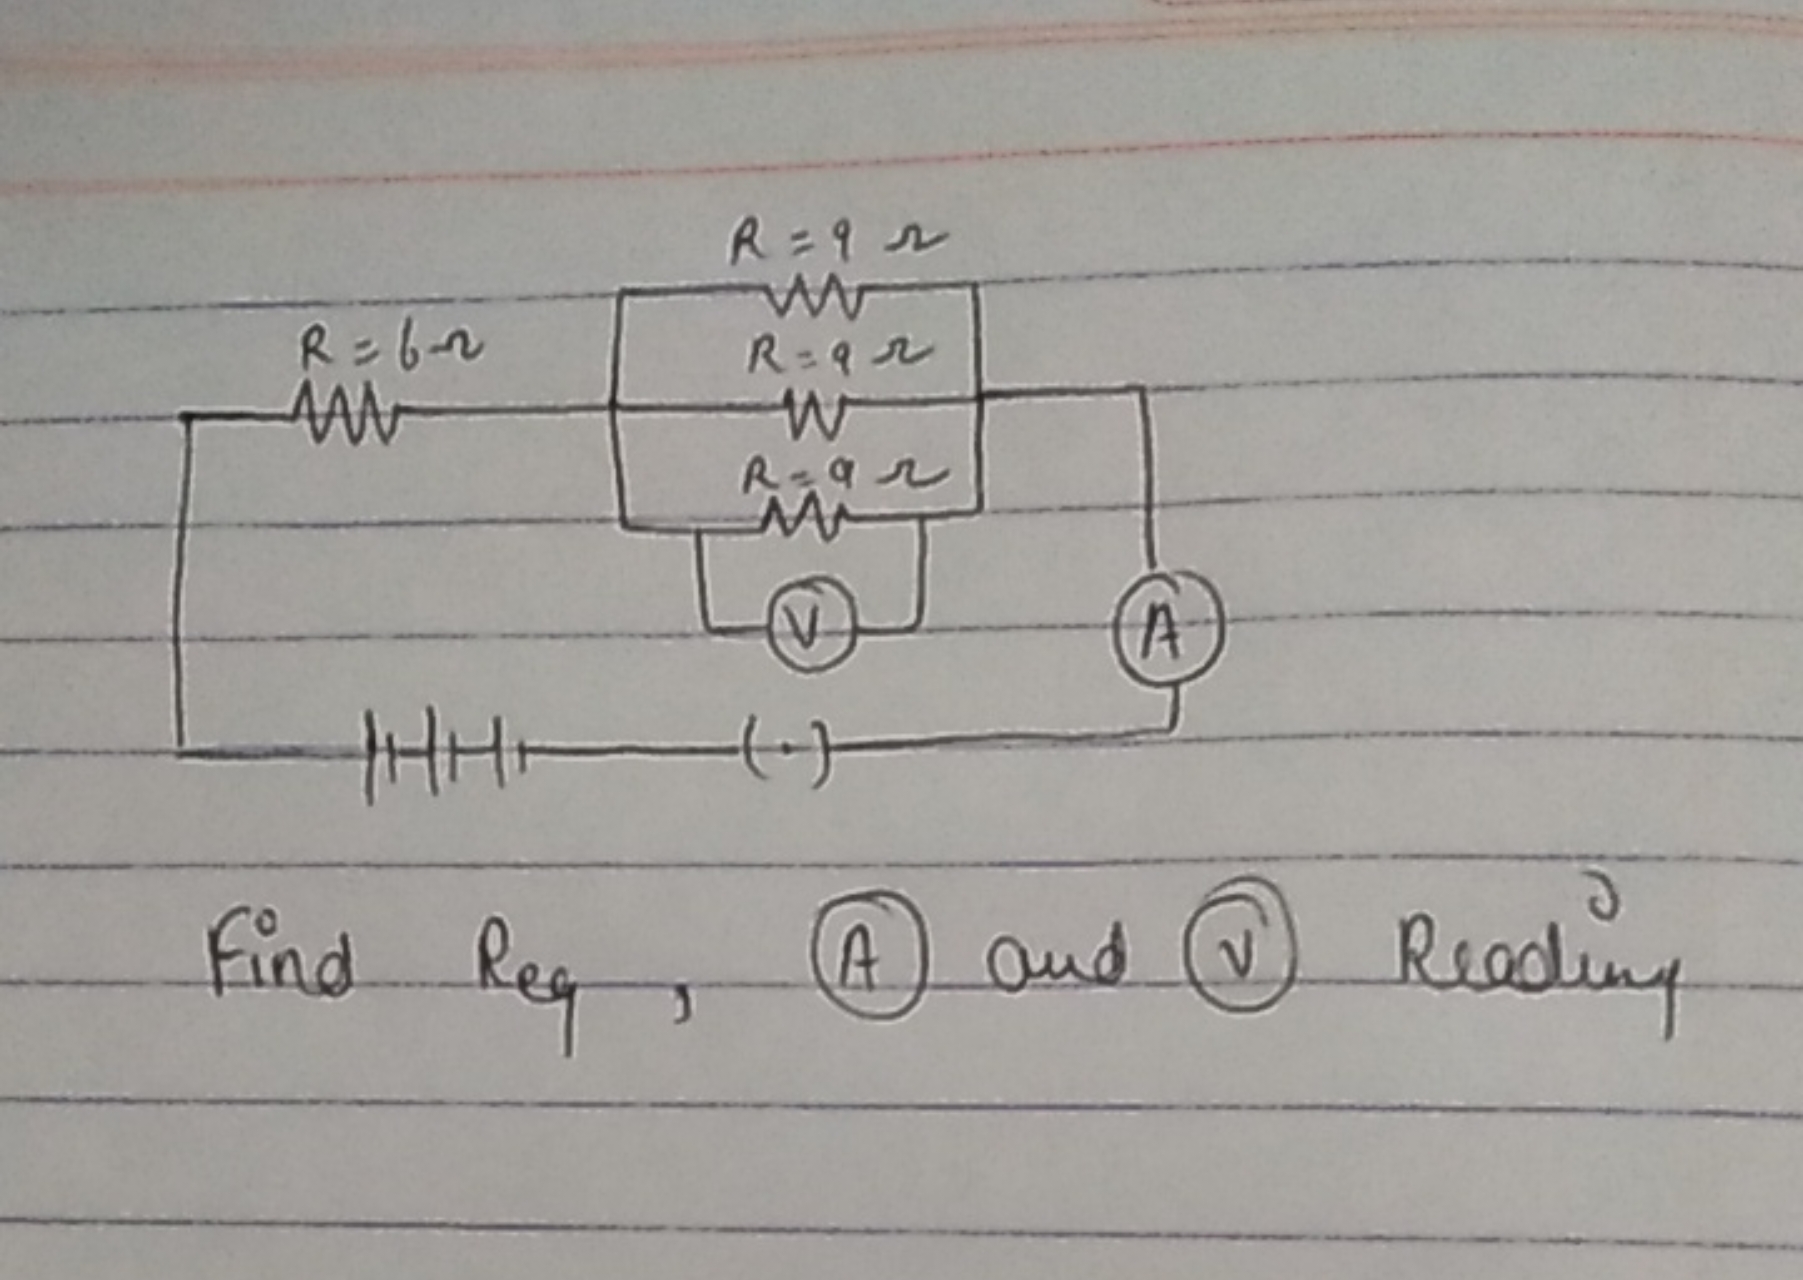 R = 9 Ω
R = 6Ω
R = 9 Ω
R = 9 Ω
V
A
Find Req , A and V Reading